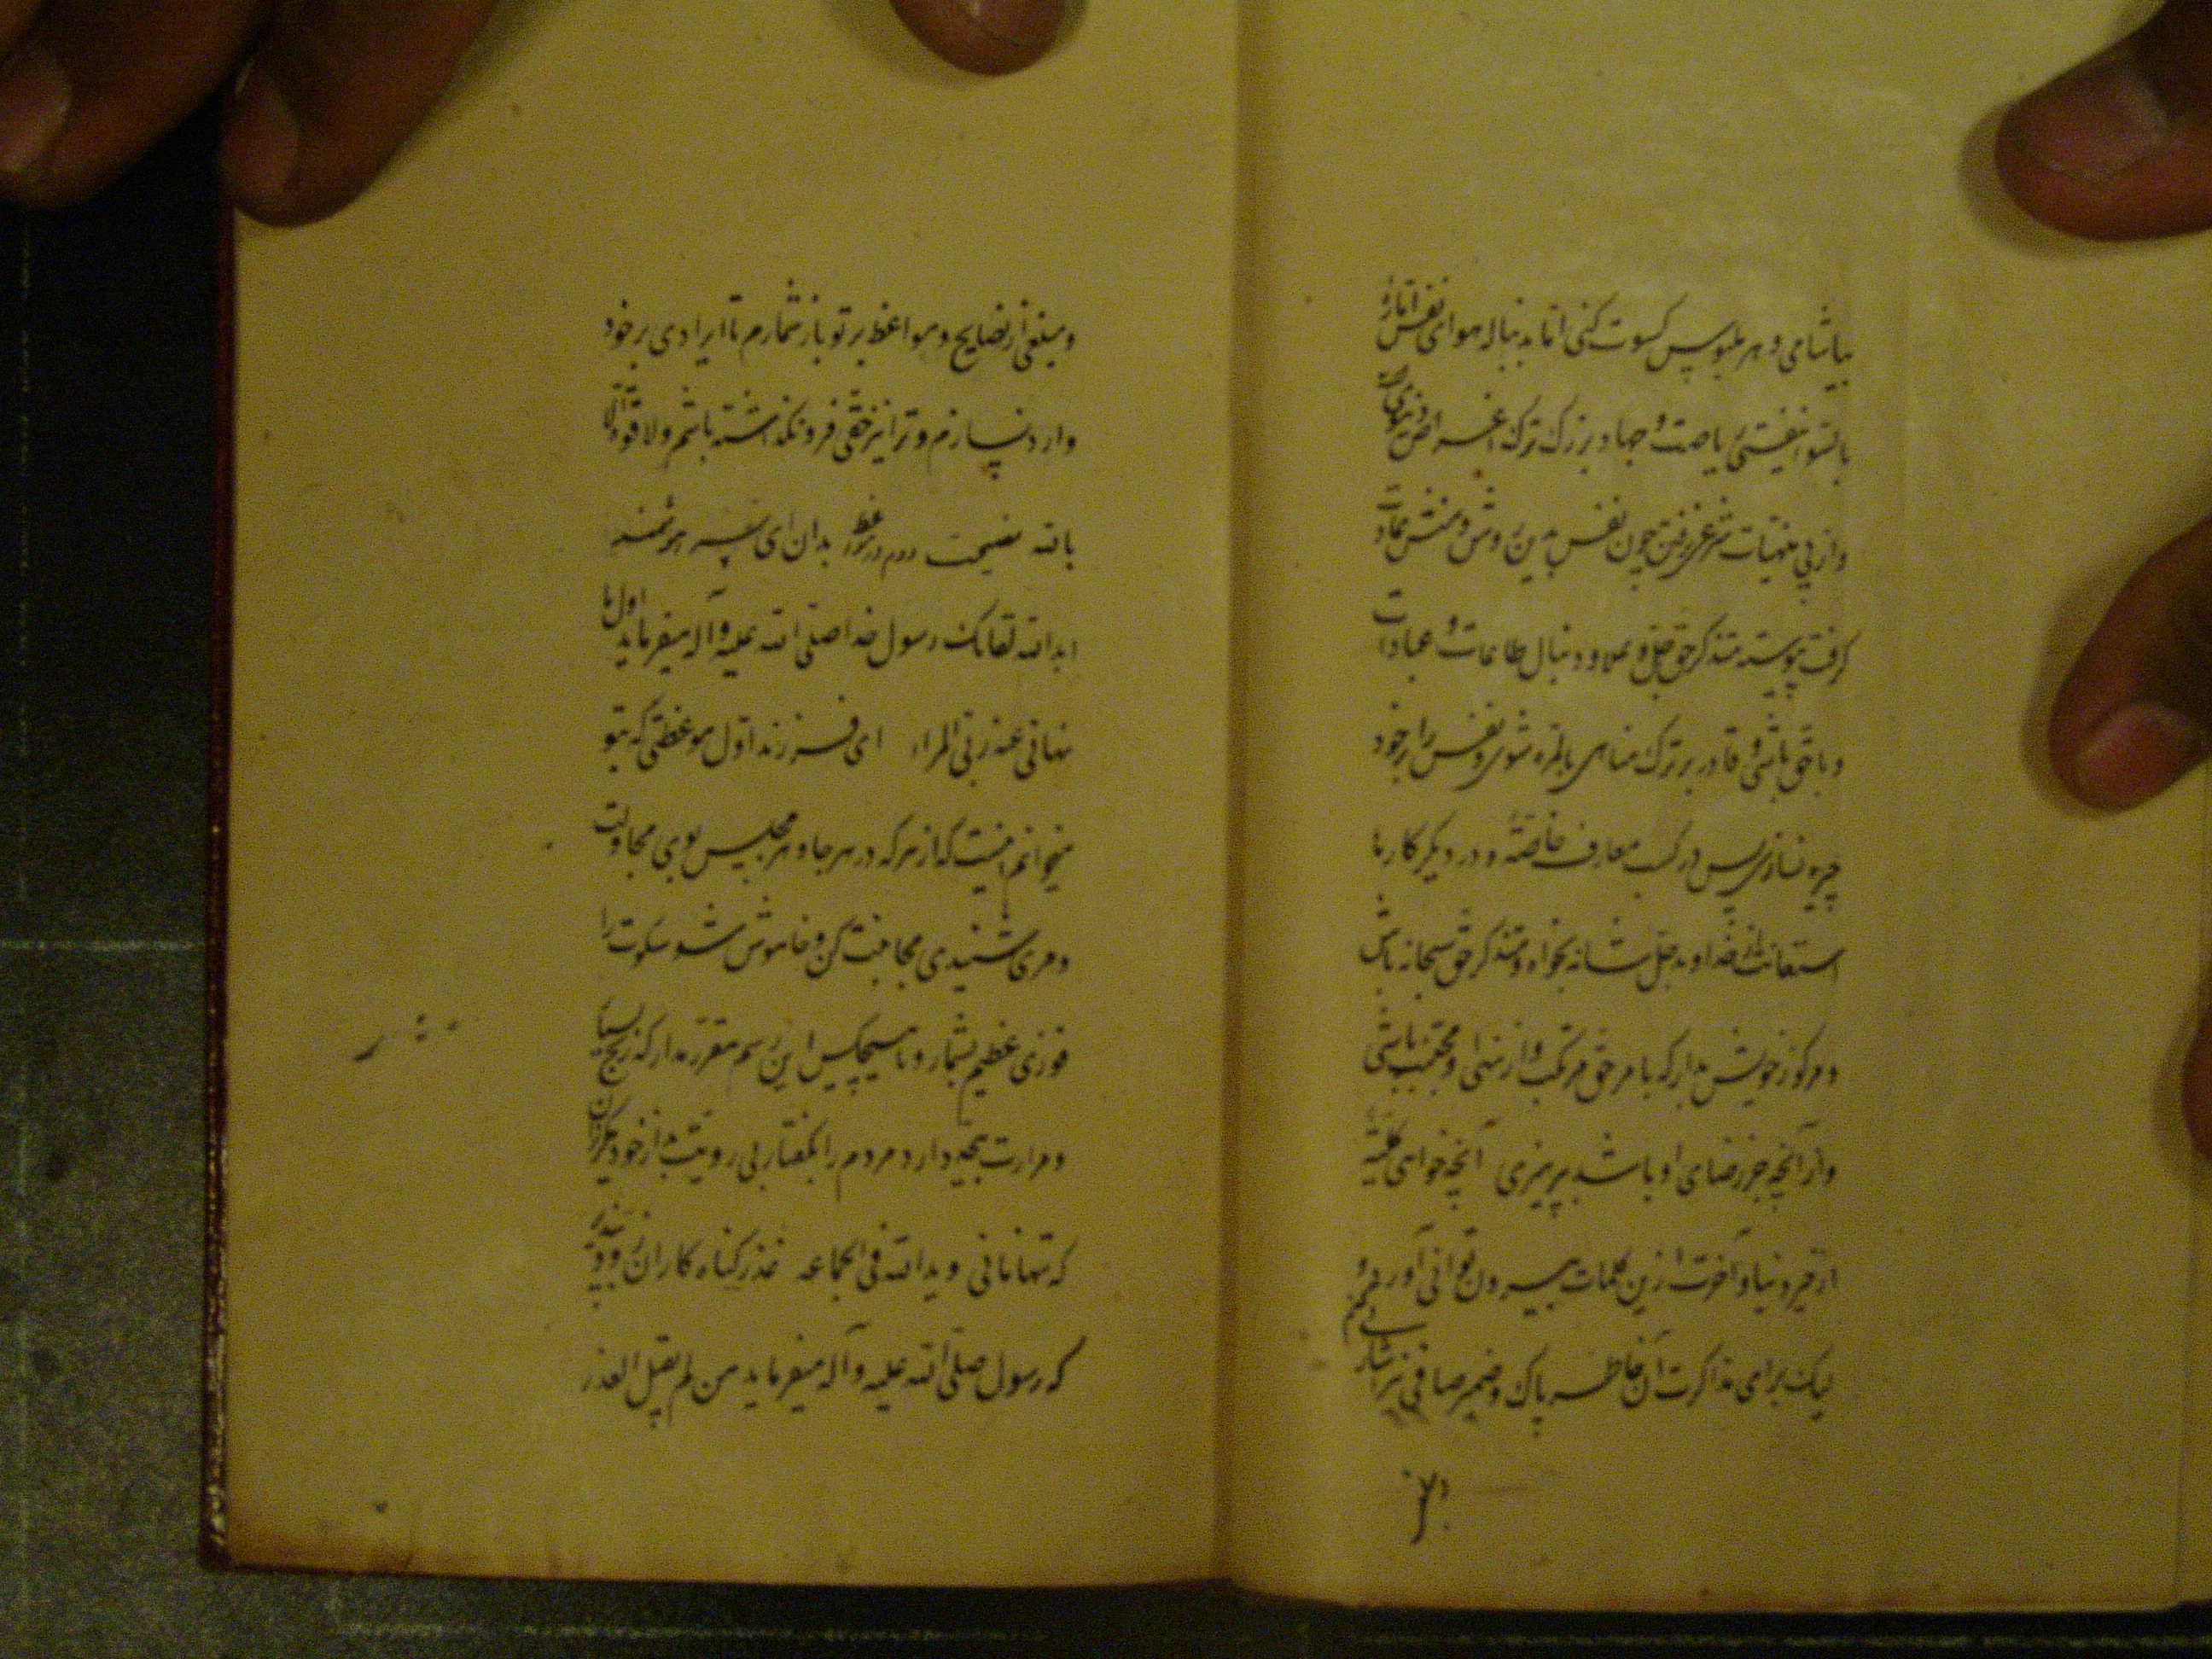 بیاشامی و هر ملبوس کسوت کنی اما بدنباله هوای نفس اماره
و از پی منهیات شرع نرفتن چون نفس بدین روش و منش عادت
گرفت پیوسته متذکر حق جل و علا و دنبال طاعات و عبادات
و باحق باشی و قادر بر ترک مناهی بالمره شوی و نفس را بر خود
چیره نسازی پس در کسب معارف خاصه و در دیگر کارها
استعانت از خداوند جل شانه بخواه و متذکر حق سبحانه باش
و مرکوز خویش بدار که بامر حق مرتکب و از نهی او مجتنب باشی
و از آنچه جز رضای او باشد بپرهیزی آنچه خواهی
از خیر دنیا و آخرت ازین کلمات بیرون توانی آورد
لیک برای مذاکرت آن خاطر پاک و ضمیر صافی نیز
و مبلغی از نصایح و مواعظ بر تو باز شمارم تا ایرادی بر خود
وارد نسازم و ترا نیز حقی فرو نگذاشته باشم ولا قوة الا
بالله نصیحت دوم در مواعظ بدان ای پسر هوشمند
ابدالله تعالی که رسول خدا صلی الله علیه و آله میفرماید اول ما
نهانی عنه ربی المراء ای فرزند اول موعظتی که بتو
میخوانم اینست که از هر که در هر جا و هر مجلس بوی مجادلت
و مری شنیدی مجانبت کن و خاموش شو سکوت را
فوزی عظیم بشمار و با هیچکس این رسم مقرر مدار که رنج بسیار
و مرارت نتیجه دارد و مردم را بگفتار بی رویت از خود مگریزان
که تنها مانی و ید الله فی الجماعه عذر گناه کاران زود بپذیر
که رسول صلی الله علیه و آله میفرماید من لم یقبل العذر